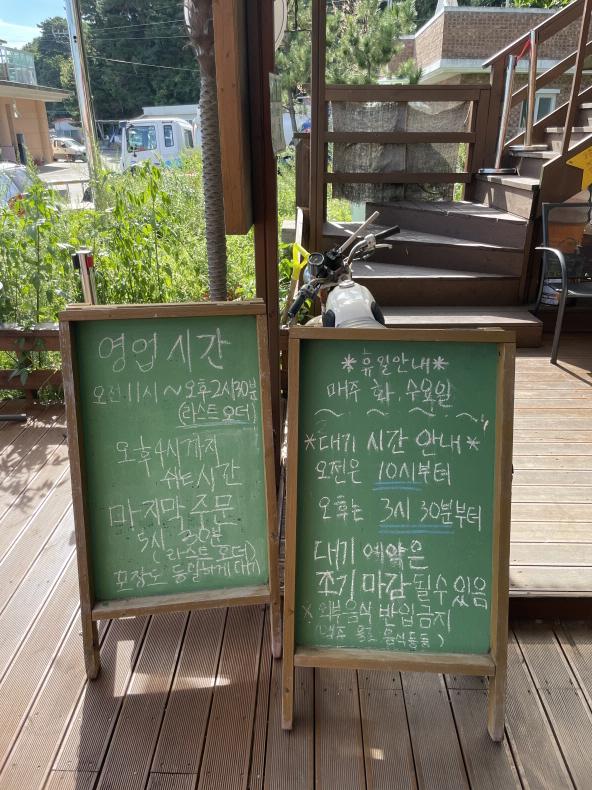 영업시간
오전.11시~오후2시30분
(라스트오더)
오후4시까지
쉬는시간
마지막 주문
5시 30분
(라스트 오더)
포장도 동일하게 대기
*휴일안내*
매주 화, 수요일
*대기 시간 안내*
오전은 10시부터
오후는 3시 30분부터
대기 예약은
조기 마감 될수 있음
※ 외부음식 반입금지
음식물등)